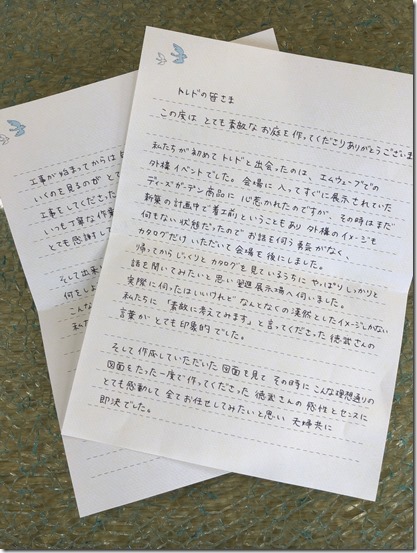 トレドの皆さま
この度は とても素敵な お庭を 作ってくださり ありがとうございま
私たちが初めてトレドと出会ったのは、エムウェーブでの
外構イベントでした。会場に入ってすぐに展示されていた
ディーズガーデン商品に 心惹かれたのですが、その時はまだ
新築の計画中で着工前ということもあり 外構のイメージも
何もない状態だったので お話を伺う勇気がなく、
カタログだけ いただいて会場を後にしました。
帰ってから じっくりと カタログを 見ているうちに やっぱり しっかりと
話を聞いてみたいと思い 展示場へ伺いました。
実際に伺ったはいいけれど なんとなくの漠然としたイメージしかない
私たちに 「素敵に考えてみます」と 言ってくださった 徳武さんの
言葉が とても印象的でした。
そして 作成していただいた 図面を見て その時に こんな理想通りの
図面を たった一度で 作ってくださった 徳武さんの 感性と センスに
とても感動して 全てお任せしてみたいと思い 夫婦共に
即決でした。
工事が始まってからは
いくのを見るのが と
工事をしてくださった
いつも丁寧な作業
とても感謝し
そして出来
何をしよ
こんな
私た